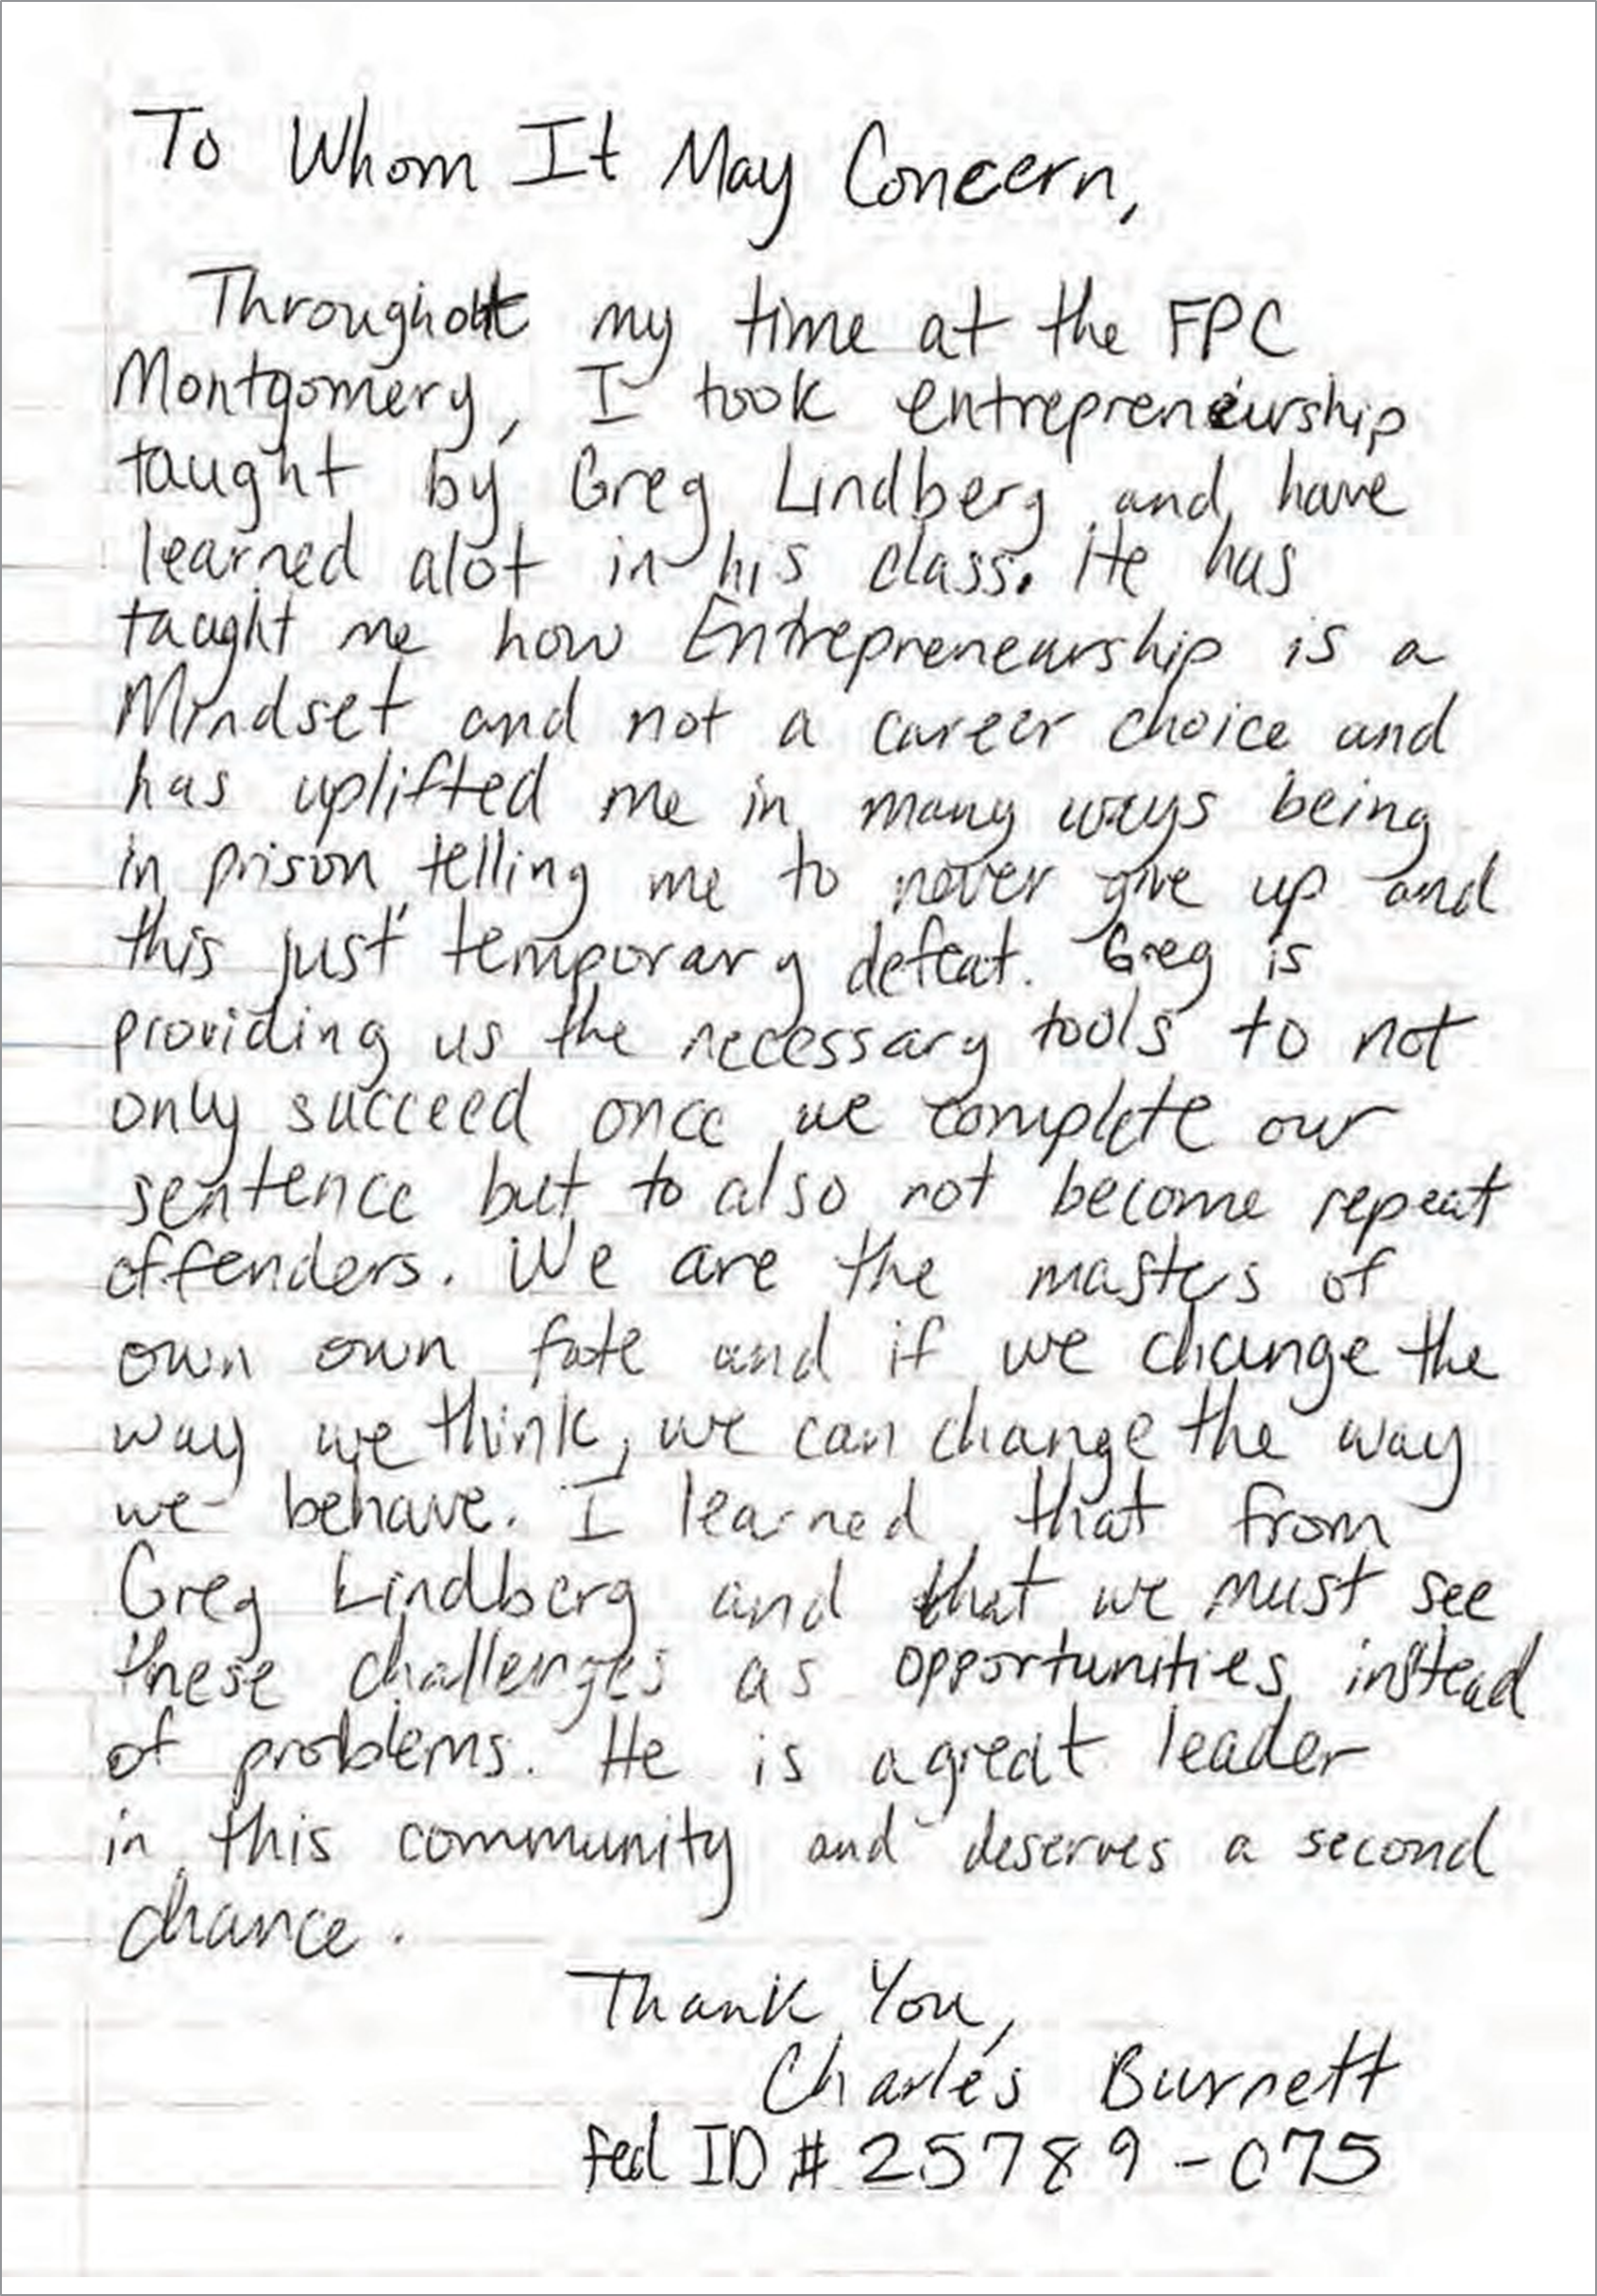 To Whom It May Concern,
Throughout my time at the FPC
Montgomery, I took entrepreneurship
taught by Greg Lindberg and have
learned alot in his class. He has
taught me how Entrepreneurship is a
Mindset and not a career choice and
has uplifted me in many ways being
in prison telling me to never give up and
this just temporary defeat. Greg is
providing us the necessary tools to not
only succeed once we complete our
sentence but to also not become repeat
offenders. We are the masters of
own own fate and if we change the
way we think, we can change the way
we behave. I learned that from
Greg Lindberg and that we must see
these challenges as opportunities instead
of problems. He is a great leader
in this community and deserves a second
chance.
Thank You,
Charles Burnett
Fed ID # 25789-075